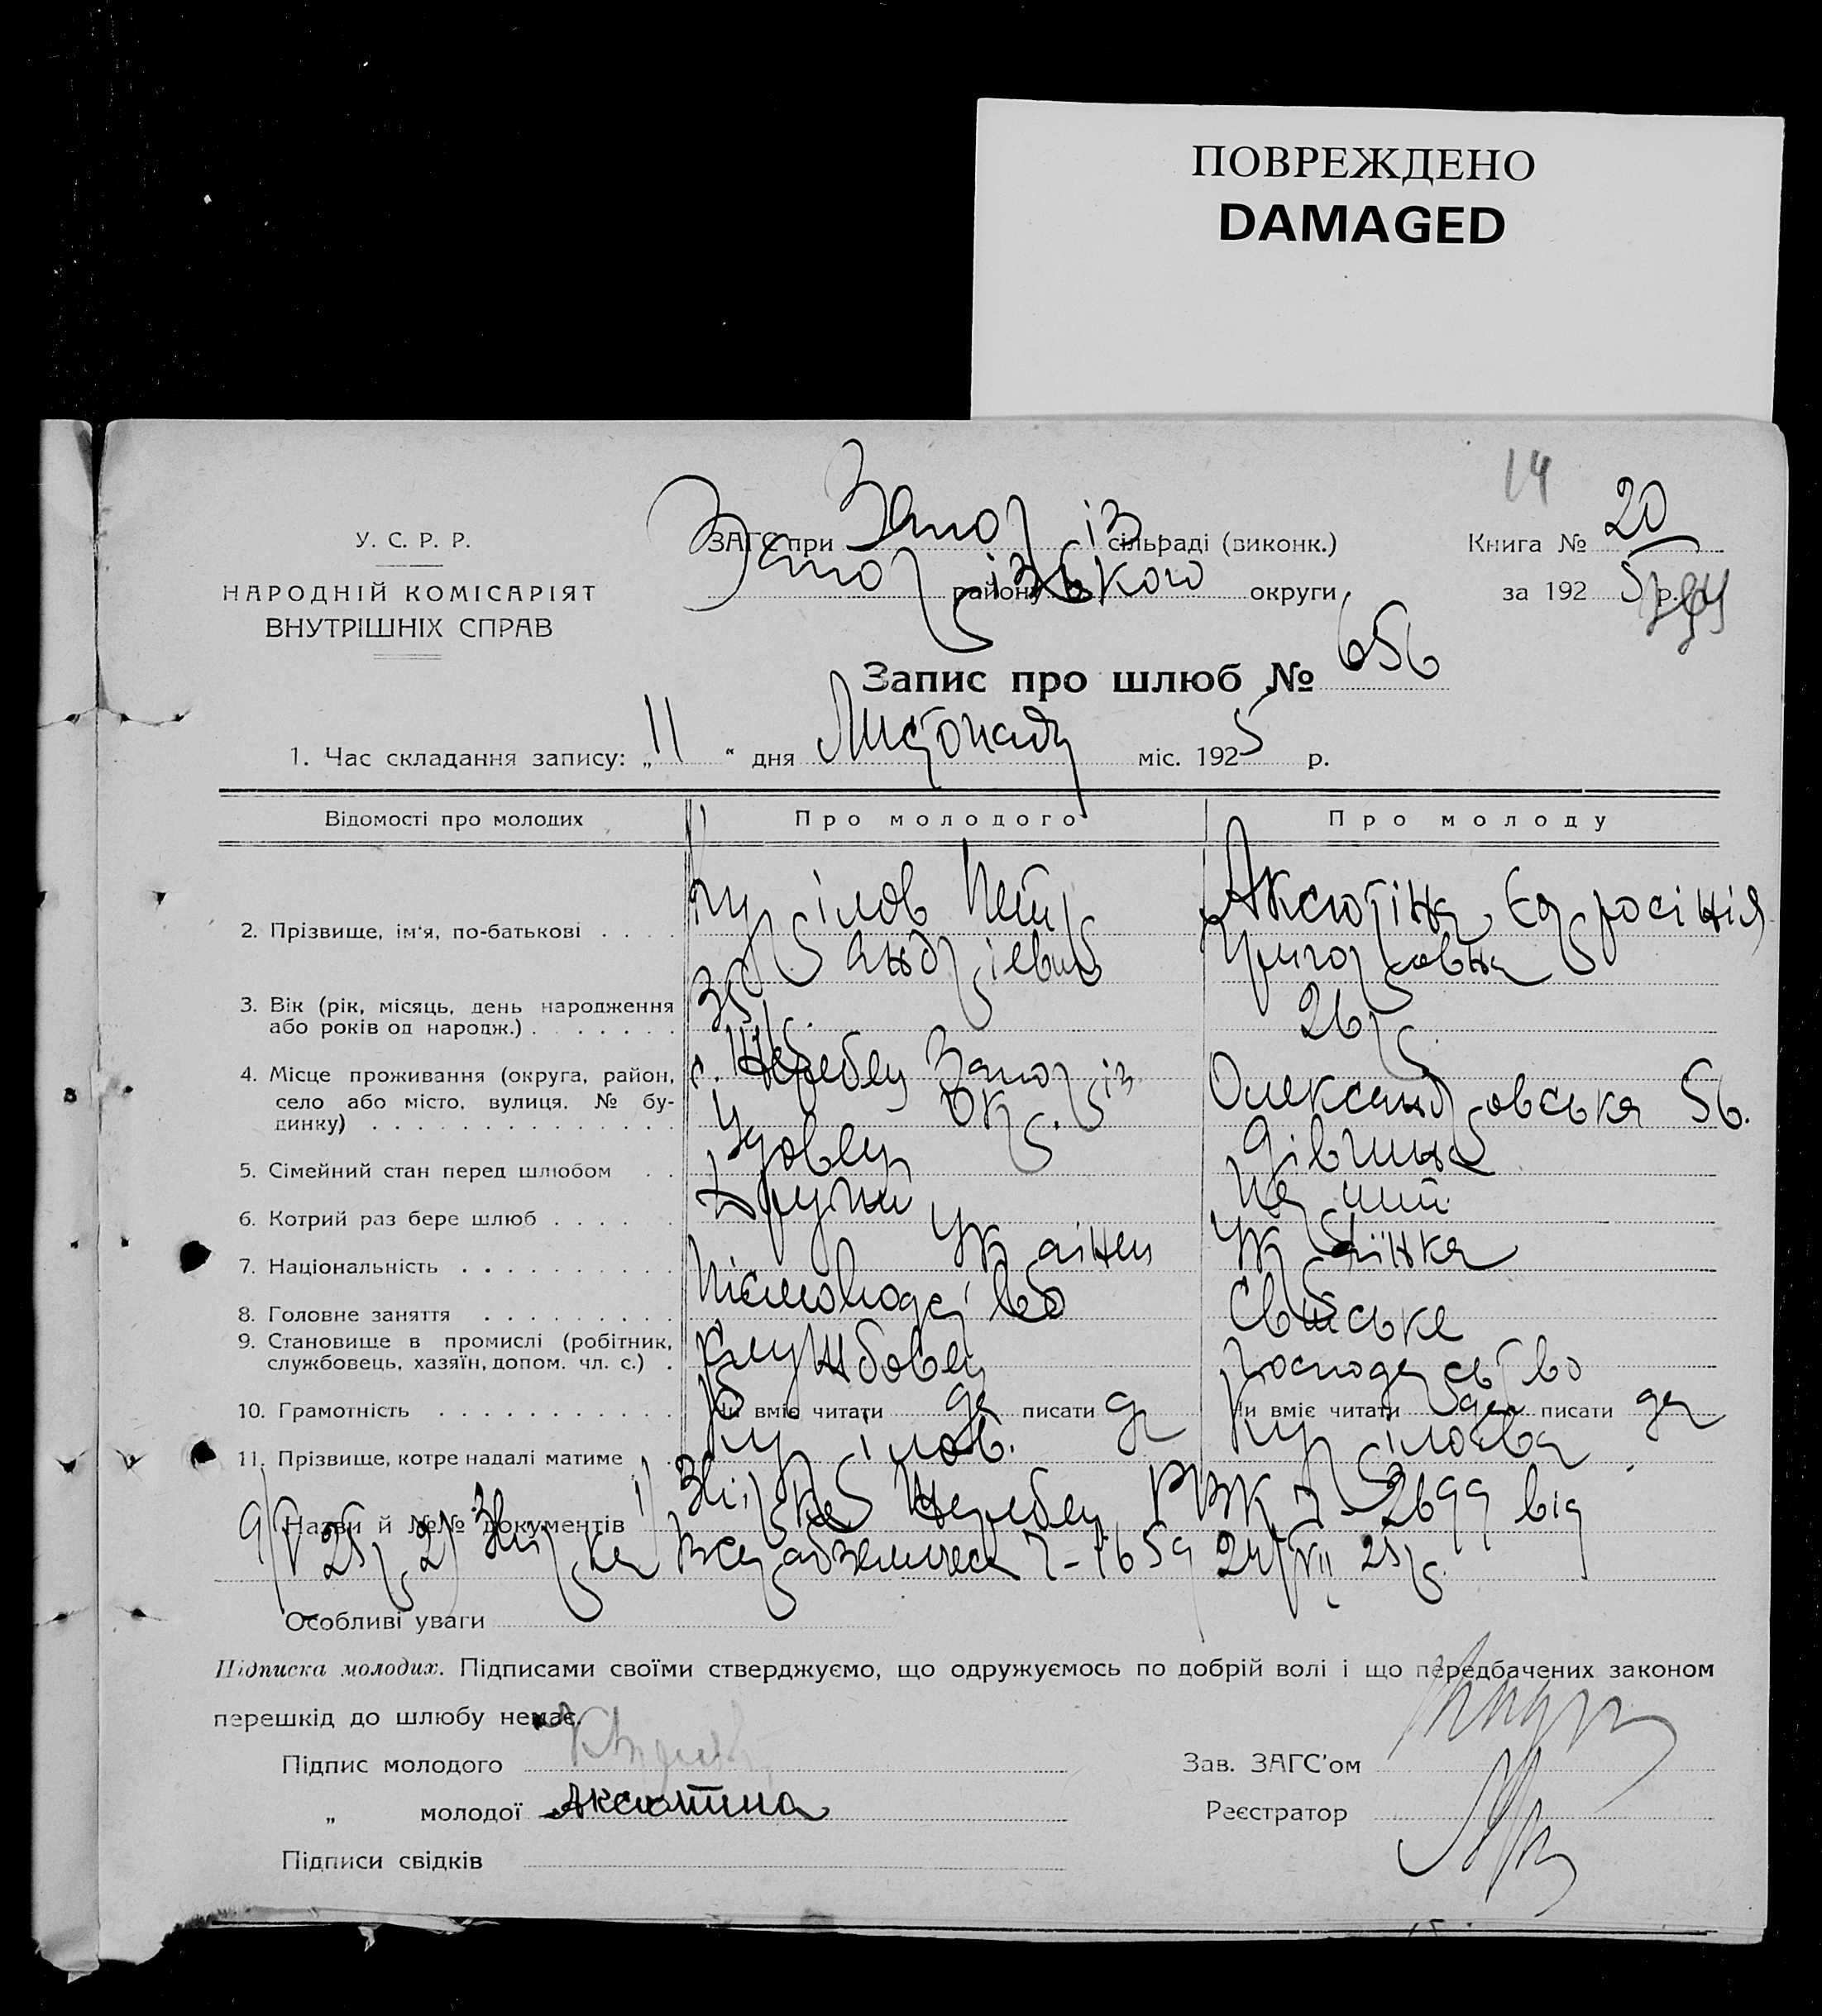 ПОВРЕЖДЕНО
DAMAGED
14
У. С. Р. Р.
НАРОДНІЙ КОМІСАРІЯТ
ВНУТРІШНІХ СПРАВ
ЗАГС при Запоріз сільраді (виконк.)
району Запорізького округи
Книга № 20
за 1925 р.
Запис про шлюб № 656
1. Час складання запису: „11" дня Листопада міс. 1925 р.
Відомості про молодих Про молодого Про молоду
2. Прізвище, ім'я, по-батькові . . . . Курілов Петр Андрієвич Аксютіна Єфросінія Григоровна
3. Вік (рік, місяць, день народження
або років од народж.) . . . . . . . 26 р
4. Місце проживання (округа, район,
село або місто, вулиця, № бу-
динку) . . . . . . . . . . . . . . с. Жеребец Запоріз Окр. Олександровська 56.
5. Сімейний стан перед шлюбом . . Удовец Дівчина
6. Котрий раз бере шлюб . . . . . Другий Перший
7. Національність . . . . . . . . . . Українец Українка
8. Головне заняття . . . . . . . . . Пісьмоводство Свійське
9. Становище в промислі (робітник,
службовець, хазяїн, допом. чл. с.) . Службовец господарство
10. Грамотність . . . . . . . . . . . Чи вміє читати да писати да Чи вміє читати да писати да
11. Прізвище, котре надалі матиме Курілов. Курілова
Назви й №№ документів 1) Звірка Жеребец РВК 2699 від
9/V 25р 2) Звірка 24/VII 25р.
Особливі уваги
Підписка молодих. Підписами своїми стверджуємо, що одружуємось по добрій волі і що передбачених законом
перешкід до шлюбу немає.
Підпис молодого
Зав. ЗАГС'ом
„ молодої Аксютина
Реєстратор
Підписи свідків